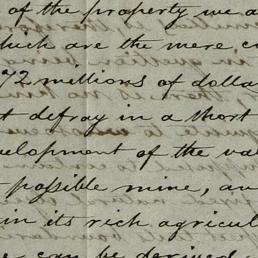 of the property we a
which are the mere c
72 millions of dolla
t defray in a short
velopment of the val
possible mine, an
in its rich agricul
can be derived